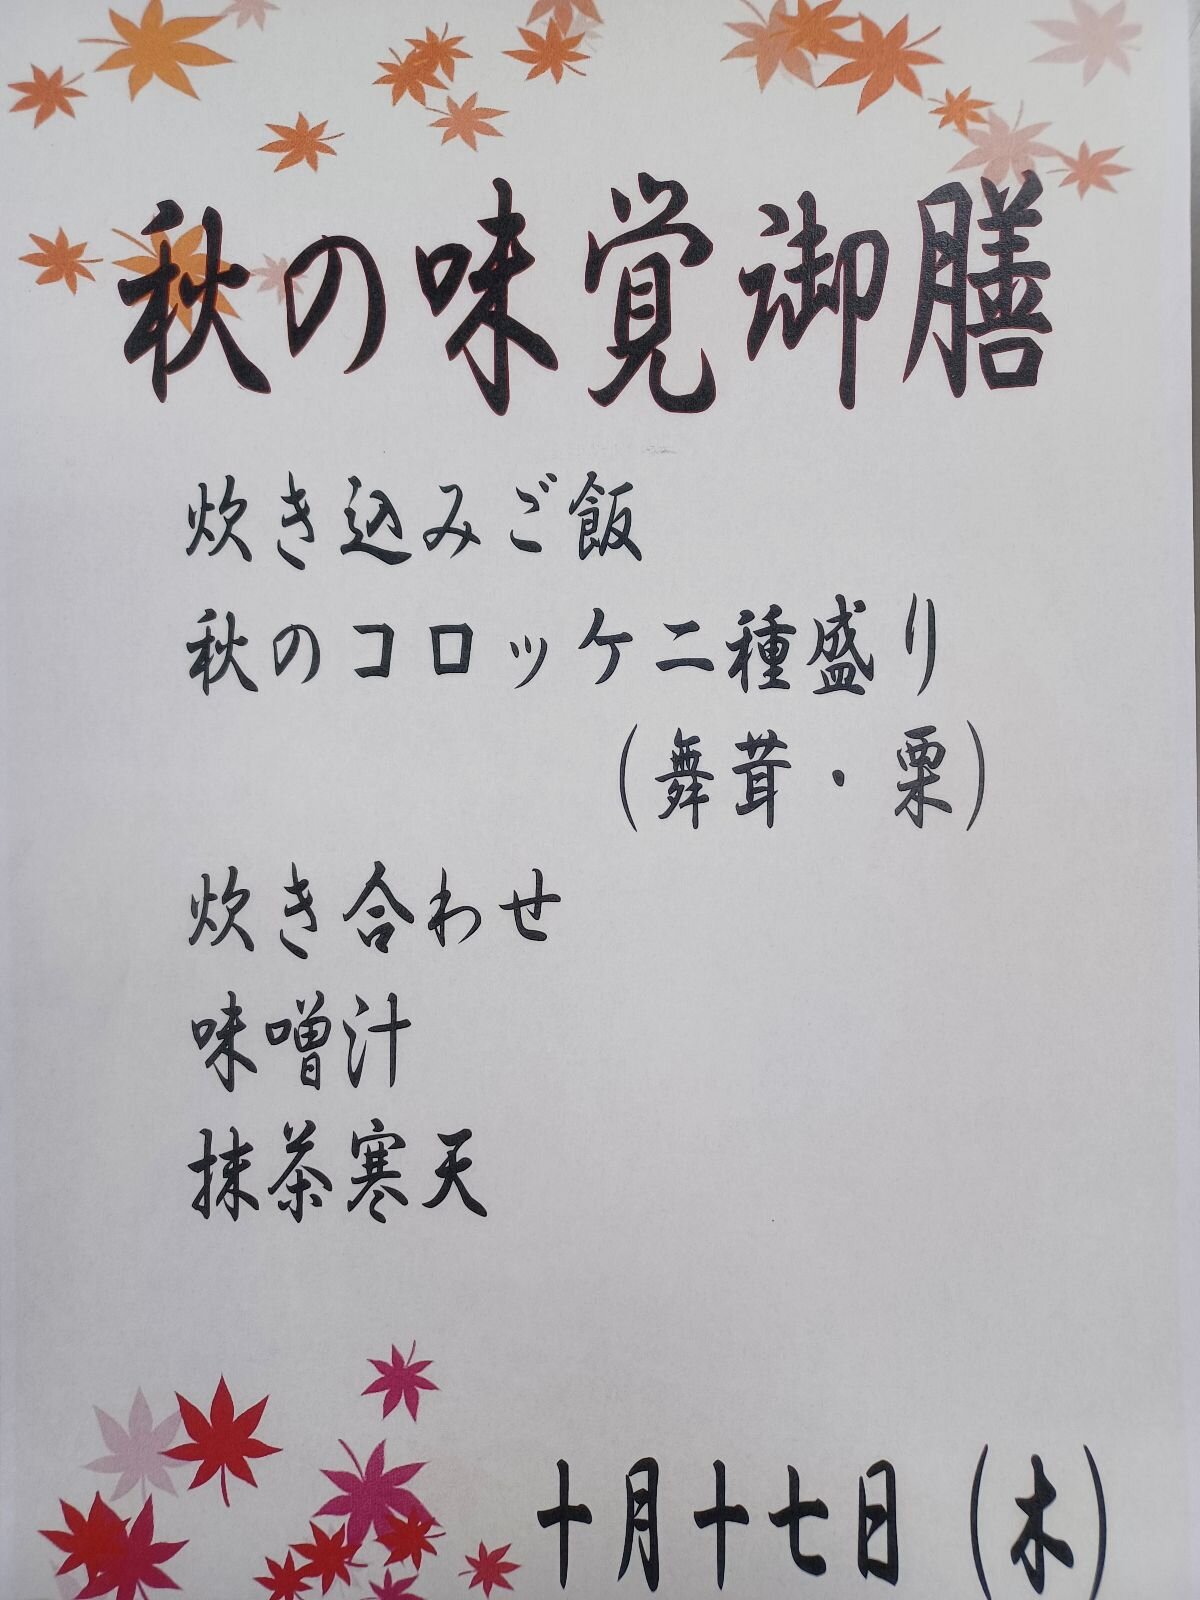 秋の味覚御膳
炊き込みご飯
秋のコロッケ二種盛り
(舞茸・栗)
炊き合わせ
味噌汁
抹茶寒天
十月十七日(木)